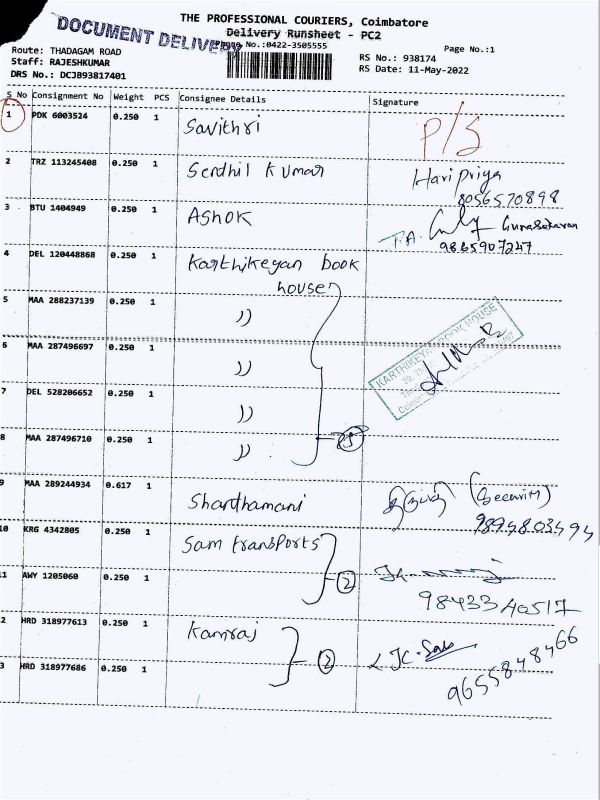 THE PROFESSIONAL COURIERS, Coimbatore
DOCUMENT DELIVERY
Delivery Runsheet - PC2
Phone No.:0422-3505555
Page No.:1
Route: THADAGAM ROAD
RS No.: 938174
Staff: RAJESHKUMAR
RS Date: 11-May-2022
DRS No.: DCJB93817401
S No Consignment No Weight PCS Consignee Details Signature
1 PDK 6003524 0.250 1 Savithri P/S
2 TRZ 113245408 0.250 1 Senthil Kumar Hari Priya
8056570898
3 BTU 1404949 0.250 1 ASHOK Gunasekaran
9865907247
4 DEL 120448868 0.250 1 Karthikeyan book
house
5 MAA 288237139 0.250 1 ))
6 MAA 287496697 0.250 1 ))
KARTHIKEYAN BOOK HOUSE
7 DEL 528206652 0.250 1 ))
8 MAA 287496710 0.250 1 ))
9 MAA 289244934 0.617 1 Shanthamani (Security)
9894803494
10 KRG 4342805 0.250 1 Sam transports
11 AWY 1205060 0.250 1 2
9843340517
2 HRD 318977613 0.250 1 Kamraj
3 HRD 318977686 0.250 1 2
9655848466